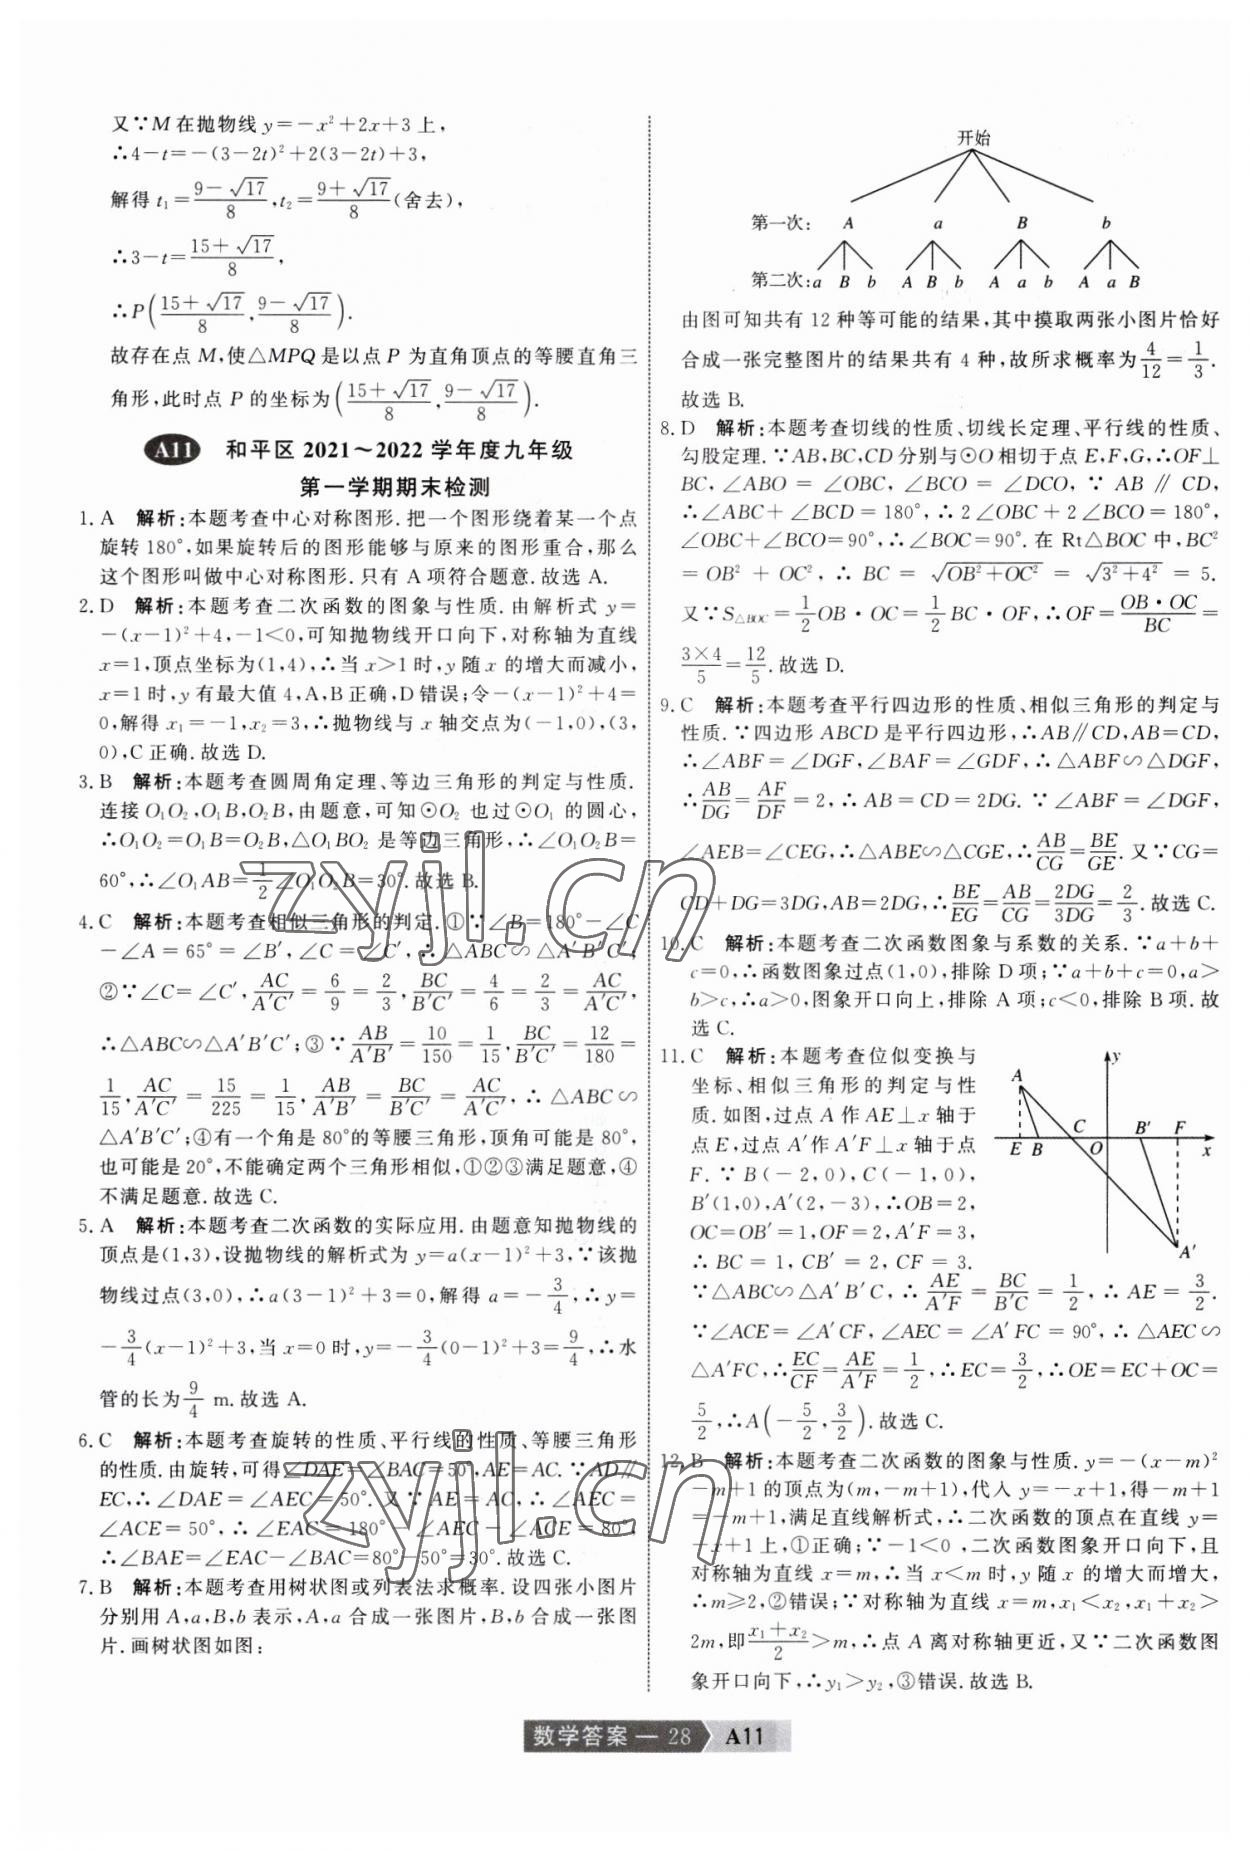 又∵M在抛物线y=-x²+2x+3上,
∴4-t=-(3-2t)²+2(3-2t)+3,
解得t₁=(9-√17)/8,t₂=(9+√17)/8(舍去),
∴3-t=(15+√17)/8,
∴P((15+√17)/8,(9-√17)/8).
故存在点M,使△MPQ是以点P为直角顶点的等腰直角三
角形,此时点P的坐标为((15+√17)/8,(9-√17)/8).
A11 和平区2021~2022学年度九年级
第一学期期末检测
1. A 解析:本题考查中心对称图形.把一个图形绕着某一个点
旋转180°,如果旋转后的图形能够与原来的图形重合,那么
这个图形叫做中心对称图形.只有A项符合题意.故选A.
2. D 解析:本题考查二次函数的图象与性质.由解析式y=
-(x-1)²+4,-1<0,可知抛物线开口向下,对称轴为直线
x=1,顶点坐标为(1,4),∴当x>1时,y随x的增大而减小,
x=1时,y有最大值4,A,B正确,D错误;令-(x-1)²+4=
0,解得x₁=-1,x₂=3,∴抛物线与x轴交点为(-1,0),(3,
0),C正确.故选D.
3. B 解析:本题考查圆周角定理、等边三角形的判定与性质.
连接O₁O₂,O₁B,O₂B,由题意,可知⊙O₂也过⊙O₁的圆心,
∴O₁O₂=O₁B=O₂B,△O₁BO₂是等边三角形,∴∠O₁O₂B=
60°,∴∠O₁AB=1/2∠O₁O₂B=30°.故选B.
4. C 解析:本题考查相似三角形的判定.①∵∠B=180°-∠C
-∠A=65°=∠B′,∠C=∠C′,∴△ABC∽△A′B′C′;
②∵∠C=∠C′,AC/A′C′=6/9=2/3,BC/B′C′=4/6=2/3=AC/A′C′,
∴△ABC∽△A′B′C′;③∵AB/A′B′=10/150=1/15,BC/B′C′=12/180=
1/15,AC/A′C′=15/225=1/15,AB/A′B′=BC/B′C′=AC/A′C′,∴△ABC∽
△A′B′C′;④有一个角是80°的等腰三角形,顶角可能是80°,
也可能是20°,不能确定两个三角形相似,①②③满足题意,④
不满足题意.故选C.
5. A 解析:本题考查二次函数的实际应用.由题意知抛物线的
顶点是(1,3),设抛物线的解析式为y=a(x-1)²+3,∵该抛
物线过点(3,0),∴a(3-1)²+3=0,解得a=-3/4,∴y=
-3/4(x-1)²+3,当x=0时,y=-3/4(0-1)²+3=9/4,∴水
管的长为9/4 m.故选A.
6. C 解析:本题考查旋转的性质、平行线的性质、等腰三角形
的性质.由旋转,可得∠DAE=∠BAC=50°,AE=AC.∵AD∥
EC,∴∠DAE=∠AEC=50°.又∵AE=AC,∴∠AEC=
∠ACE=50°,∴∠EAC=180°-∠AEC-∠ACE=80°,
∴∠BAE=∠EAC-∠BAC=80°-50°=30°.故选C.
7. B 解析:本题考查用树状图或列表法求概率.设四张小图片
分别用A,a,B,b表示,A,a合成一张图片,B,b合成一张图
片.画树状图如图:
开始
第一次: A a B b
第二次: a B b A B b A a b A a B
由图可知共有12种等可能的结果,其中摸取两张小图片恰好
合成一张完整图片的结果共有4种,故所求概率为4/12=1/3.
故选B.
8. D 解析:本题考查切线的性质、切线长定理、平行线的性质、
勾股定理.∵AB,BC,CD分别与⊙O相切于点E,F,G,∴OF⊥
BC,∠ABO=∠CBO,∠BCO=∠DCO,∵AB∥CD,
∴∠ABC+∠BCD=180°,∴2∠OBC+2∠BCO=180°,
∠OBC+∠BCO=90°,∴∠BOC=90°.在Rt△BOC中,BC²
=OB²+OC²,∴BC=√(OB²+OC²)=√(3²+4²)=5.
又∵S△BOC=1/2OB·OC=1/2BC·OF,∴OF=OB·OC/BC=
3×4/5=12/5.故选D.
9. C 解析:本题考查平行四边形的性质、相似三角形的判定与
性质.∵四边形ABCD是平行四边形,∴AB∥CD,AB=CD,
∴∠ABF=∠DGF,∠BAF=∠GDF,∴△ABF∽△DGF,
∴AB/DG=AF/DF=2,∴AB=CD=2DG.∵∠ABF=∠DGF,
∠AEB=∠CEG,∴△ABE∽△CGE,∴AB/CG=BE/GE.又∵CG=
CD+DG=3DG,AB=2DG,∴BE/EG=AB/CG=2DG/3DG=2/3.故选C.
10. C 解析:本题考查二次函数图象与系数的关系.∵a+b+
c=0,∴函数图象过点(1,0),排除D项;∵a+b+c=0,a>
b>c,∴a>0,图象开口向上,排除A项;c<0,排除B项.故
选C.
11. C 解析:本题考查位似变换与
坐标、相似三角形的判定与性
质.如图,过点A作AE⊥x轴于
点E,过点A′作A′F⊥x轴于点
F.∵B(-2,0),C(-1,0),
B′(1,0),A′(2,-3),∴OB=2,
OC=OB′=1,OF=2,A′F=3,
∴BC=1,CB′=2,CF=3.
y
A
C B′ F
E B O x
A′
∵△ABC∽△A′B′C,∴AE/A′F=BC/B′C=1/2,∴AE=3/2.
∵∠ACE=∠A′CF,∠AEC=∠A′FC=90°,∴△AEC∽
△A′FC,∴EC/CF=AE/A′F=1/2,∴EC=3/2,∴OE=EC+OC=
5/2,∴A(-5/2,3/2).故选C.
12. B 解析:本题考查二次函数的图象与性质.y=-(x-m)²
-m+1的顶点为(m,-m+1),代入y=-x+1,得-m+1
=-m+1,满足直线解析式,∴二次函数的顶点在直线y=
-x+1上,①正确;∵-1<0,二次函数图象开口向下,且
对称轴为直线x=m,∴当x<m时,y随x的增大而增大,
∴m≥2,②错误;∵对称轴为直线x=m,x₁<x₂,x₁+x₂>
2m,即(x₁+x₂)/2>m,∴点A离对称轴更近,又∵二次函数图
象开口向下,∴y₁>y₂,③错误.故选B.
zyjl.cn
zyjl.cn
数学答案 — 28 A11